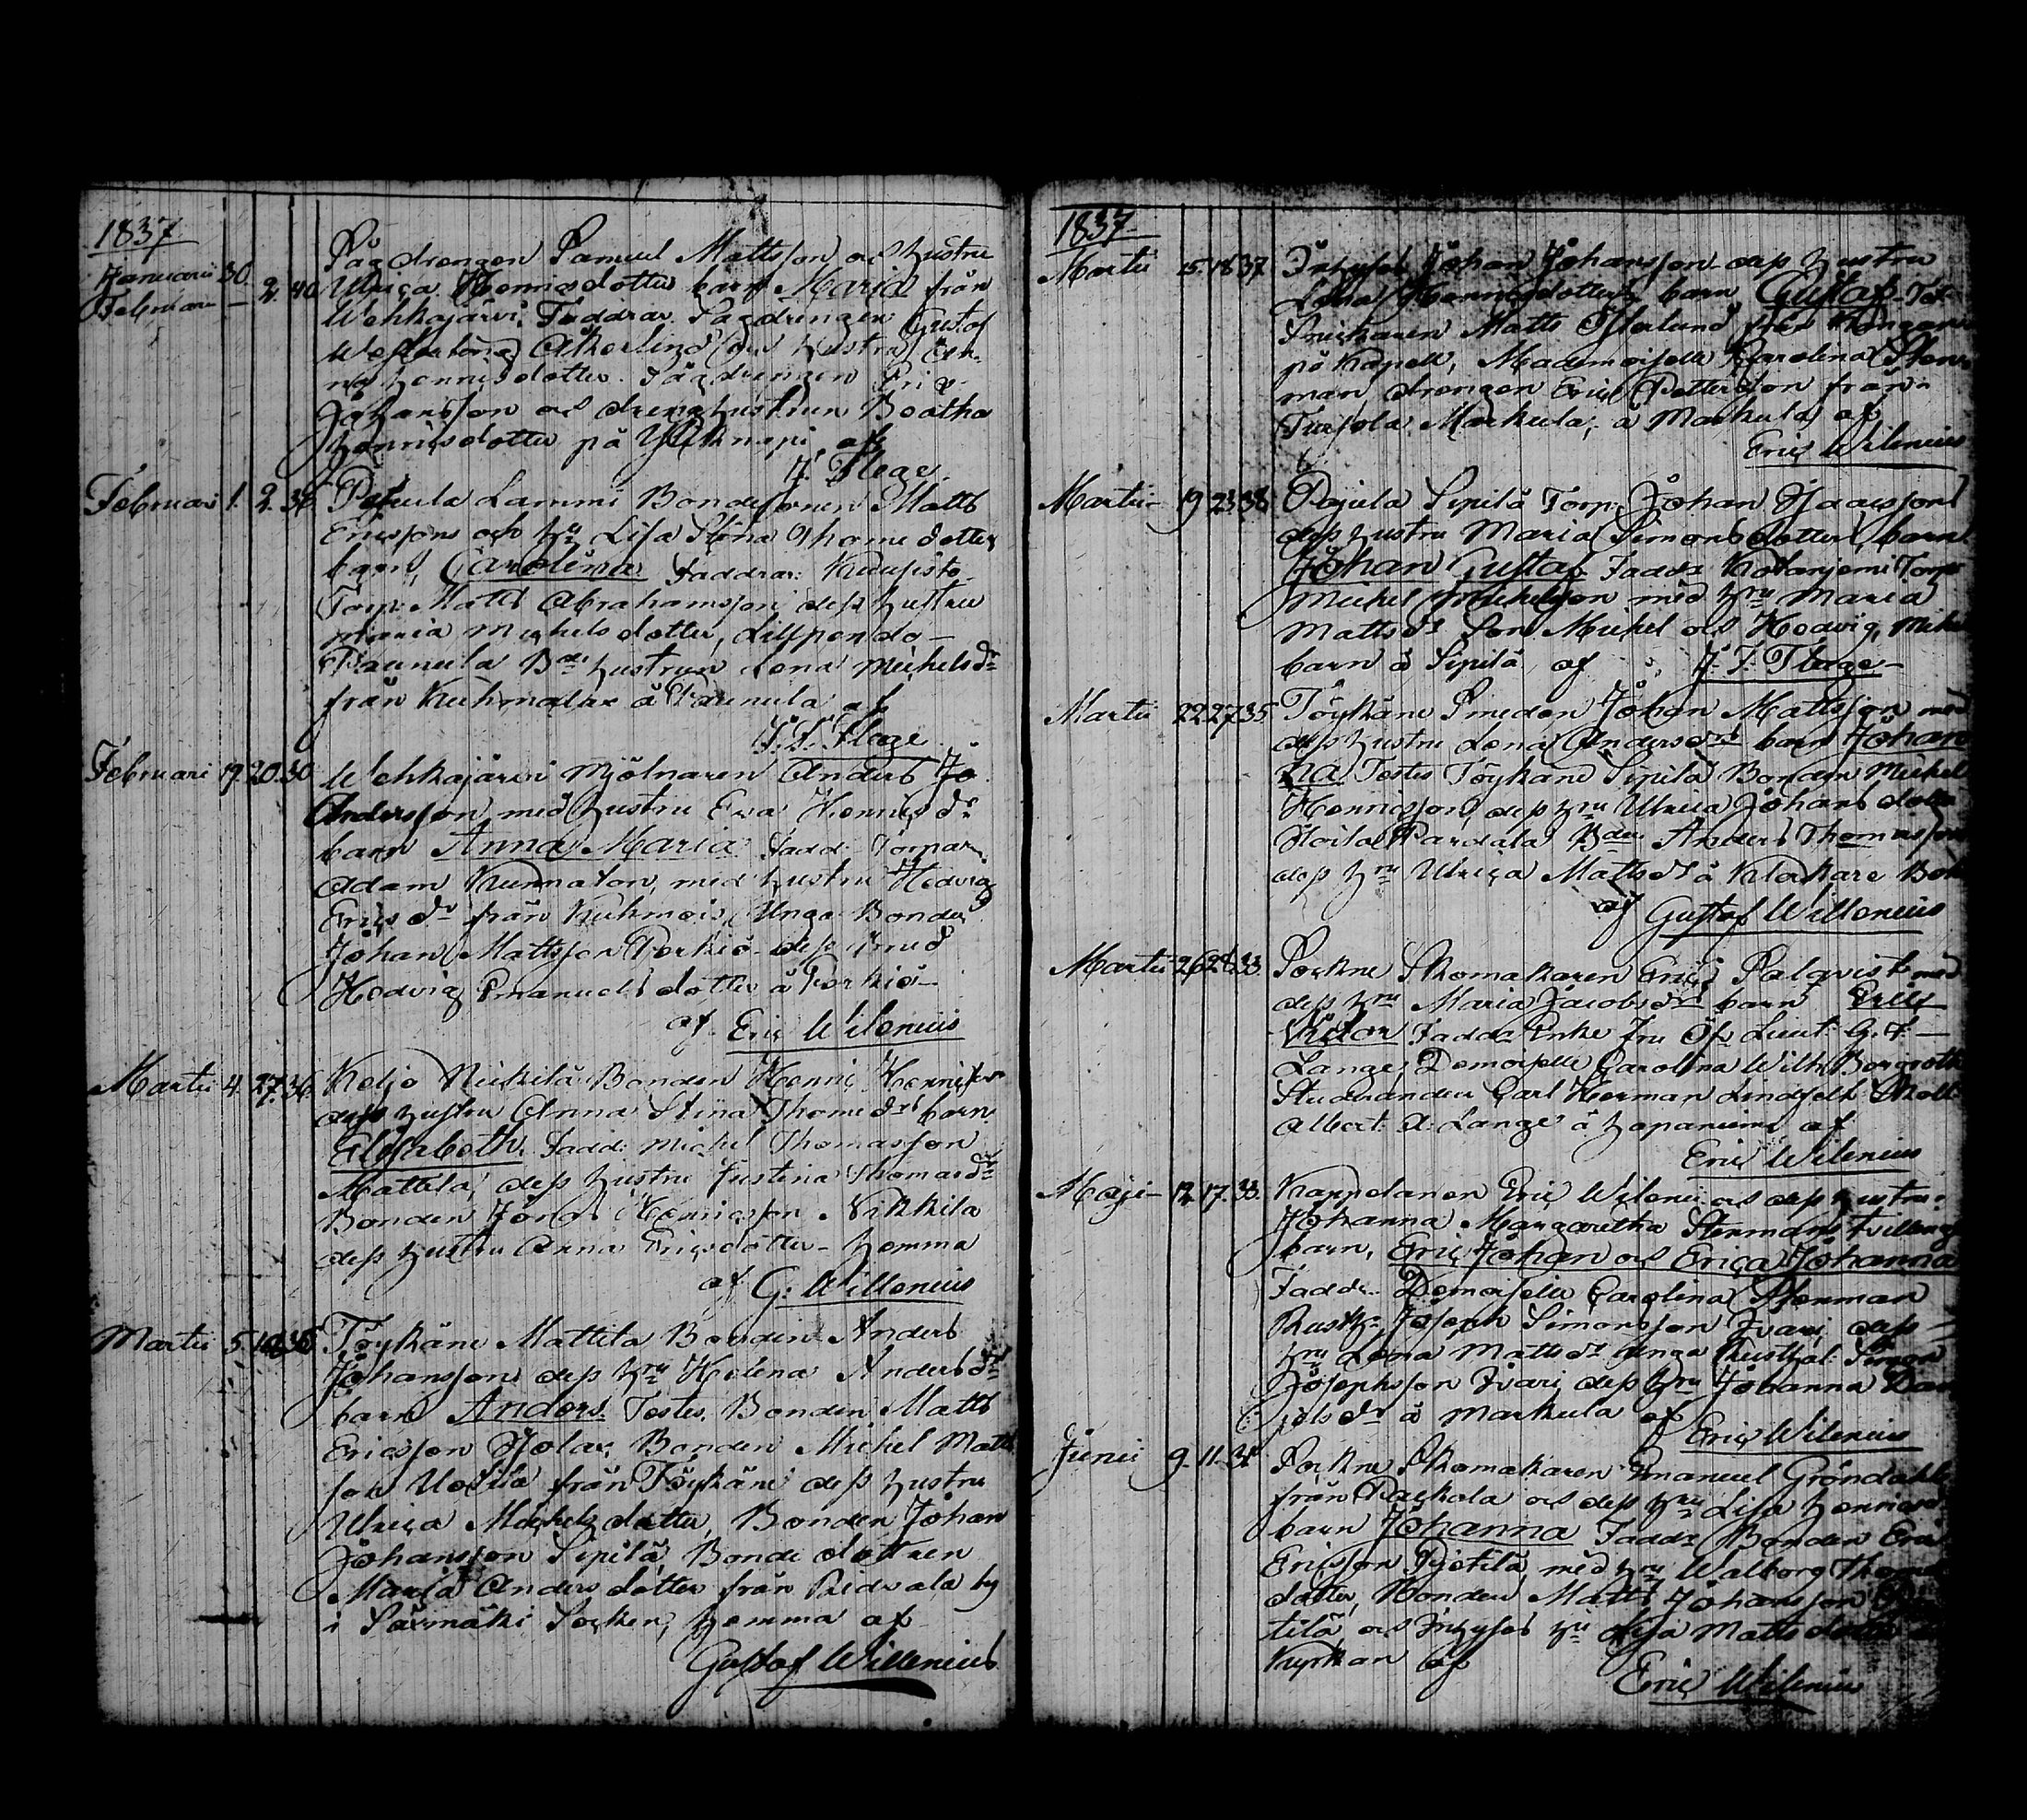 1837
Januarii 30 Sågdrengen Samuel Mattsson och hustru
Februari – 2. 40 Ulrica Henricsdotter barn Maria från
Wehkajärvi, Faddrar Sågdrengen Gustaf
Åkerlind och hustru
Henricsdotter. Sågdrengen Eric
Johansson och drenghustrun Beatha
Henricsdotter på af
F. Flege
Februari 1. 2. Lammi Bondesonen Matts
Ericsson och hu Lisa Stina Thomedotter
barn, Carolina. Faddrar:
Torp: Matts Abrahamsson, dess hustru
Maria Michelsdotter,
Paunula Bde hustrun Lena Michelsdr
från Kuhmalax å Paunula af
Flege
Februari 19. 20. 30 Wehkajärvi Mjölnaren Anders Jo
Andersson, med hustru Eva Henricsdr
barn Anna Maria Fadd: Torparn
Adam med hustru Hedvig
Ericsdr från Kuhmois, Unga Bonden
Johan Mattsson Porkiö dess
Hedvig Emanuelsdotter å Porkiö
af Eric Wilenius
Martii 4. 27. 36. Keljo Nickilä Bonden Henric Henricsson
dess hustru Anna Stina Thomedr barn
Elisabeth. Fadd: Michel Thomasson
Mattila, dess hustru Justina Thomasdr
Bonden Henricsson Nikkilä
dess hustru Anna Ericsdotter – hemma
af G: Willenius
Martii 5. Töykäne Mattila Bonden Anders
Johansson dess hru Helena Andersdr
barn Anders. Testes. Bonden Matts
Ericsson Isolax, Bonden Michel Matts
son från Töykäne dess hustru
Ulrica Michelsdotter, Bonden Johan
Johansson Sipilä, Bondedottren
Maria Andersdotter från Ridvala by
i Säxmäki Socken, hemma af
Gustaf Willenius
1837
Martii 15. 18. 37 Inhyses Johan Johansson dess hustru
Lena Henricsdotter, barn Gustaf. Tes.
Snickaren Matts Österlund från
på Kapell, Mademoiselle Carolina Sten
man drengen Eric Pettersson från
Markula; å Markula af
Eric Wilenius
Martii 19 23 38 Pajula Sipilä Torp: Johan Isaacsson
dess hustru Maria Simonsdotter, barn
Johan Gustaf. Faddr Torp
Michel Michelsson med hru Maria
Mattsdr Son Michel och Hedvig, Michels
barn å Sipilä af F. F. Flege
Martii 22 27 35 Töykäne Smeden Johan Mattsson med
dess hustru Lena Andersdr barn Johan
na. Testes Töykäne Sipilä Bonden Michel
Henricsson, dess hru Ulrica Johansdotter
Pardala Bden Anders Thomasson
dess hru Ulrica Mattsdr å Klockare Bol
af Gustaf Willenius
Martii 26 28 33 Sockne Skomakaren Eric Palqvist med
dess hru Maria Jacobsdr barn Eric
Victor Faddr Enke Fru Öf. Lieut: G. F.
Lange, Demoiselle Carolina Wilh: Borgroth
Studeranden Carl Herman Lindfelt
Albert A: Lange å Hapaniemi af
Eric Wilenius
Maji – 12. 17. 33. Kappelanen Eric Wileni: och dess hustru
Johanna Margaretha Stenmans tvillinge
barn, Eric Johan och Erica Johanna
Faddr. Demoiselle Carolina Stenman
Rusth: Joseph Simonsson Ivari, dess
hru Lena Mattsdr unga Rusthål: Simon
Josephsson Ivari, dess hru Johanna Dan
ielsdr å Markula af Eric Wilenius
Junii 9. 11. Sockne Skomakaren Emanuel Gröndahl
från Rackala och dess hru Lisa Henricsd
barn Johanna Faddr Bonden Eric
Ericsson med hru Walborg Thomas
dotter, Bonden Matts Johansson
tilä, och Inhyses hu Lisa Mattsdotter
Kyrkan af
Eric Wilenius